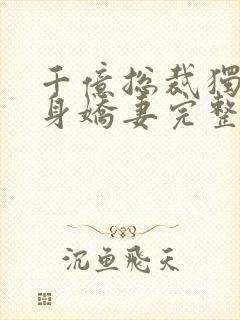 千億总裁獨
身嬌妻完整
沉鱼飛天